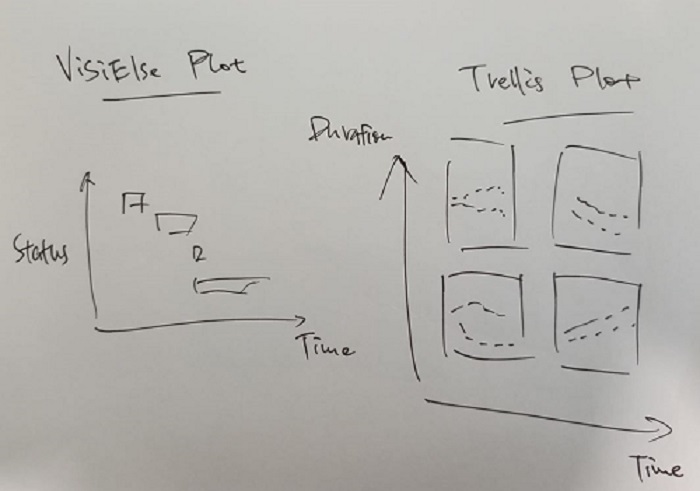 VisiElse Plot
Status
Time
Trellis Plot
Duration
Time